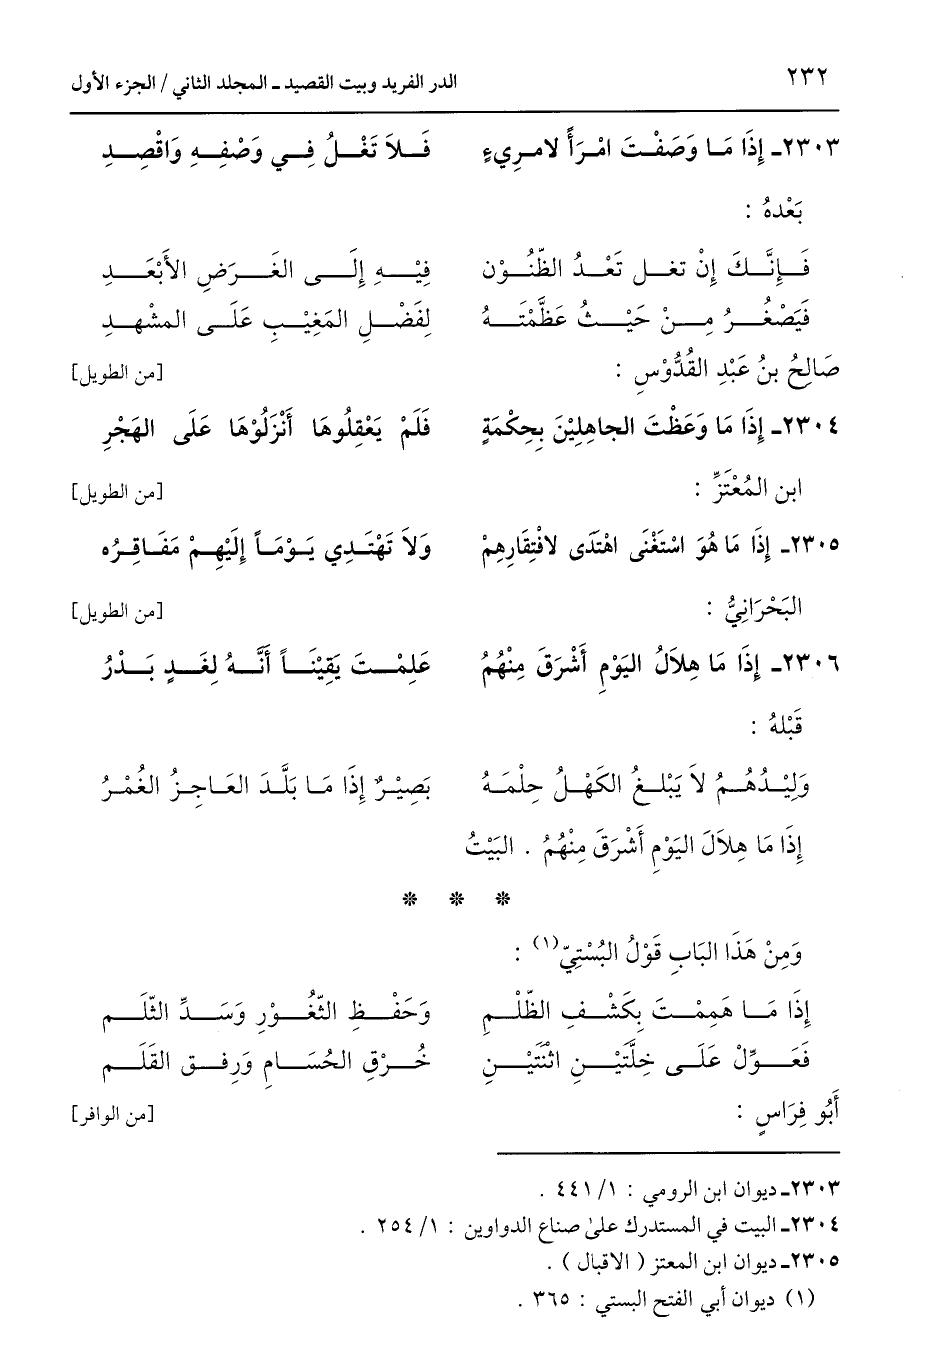 ٢٣٢ الدر الفريد وبيت القصيد ـ المجلد الثاني / الجزء الأول
٢٣٠٣ـ إِذَا مَا وَصَفْتَ امْرَأً لامرِيءٍ فَلاَ تَغْلُ فِي وَصْفِهِ وَاقْصِدِ
بَعْدهُ :
فَإِنَّكَ إِنْ تغل تَعْدُ الظّنُوْن فِيْهِ إِلَى الغَرَضِ الأَبْعَدِ
فَيَصْغُرُ مِنْ حَيْثُ عَظَّمْتَهُ لِفَضْلِ المَغِيْبِ عَلَى المشْهدِ
صَالِحُ بنُ عَبْدِ القُدُّوْسِ : [من الطويل]
٢٣٠٤ـ إِذَا مَا وَعَظْتَ الجاهِلِيْنَ بِحِكْمَةٍ فَلَمْ يَعْقِلُوهَا أَنْزَلُوْهَا عَلَى الهَجْرِ
ابن المُعْتَزِّ : [من الطويل]
٢٣٠٥ـ إِذَا مَا هُوَ اسْتَغْنَى اهْتَدَى لافْتِقَارِهِمْ وَلاَ تَهْتَدِي يَوْمَاً إِلَيْهِمْ مَفَاقِرُه
البَحْرَانِيُّ : [من الطويل]
٢٣٠٦ـ إِذَا مَا هِلاَلُ اليَوْمِ أَشْرَقَ مِنْهُمُ عَلِمْتَ يَقِيْنَاً أَنَّهُ لِغَدٍ بَدْرُ
قَبْلهُ :
وَلِيْدُهُمُ لاَ يَبْلغُ الكَهْلُ حِلْمَهُ بَصِيْرٌ إِذَا مَا بَلَّدَ العَاجِزُ الغُمْرُ
إِذَا مَا هِلاَلَ اليَوْمِ أَشْرَقَ مِنْهُمُ . البَيْتُ
* * *
وَمِنْ هَذَا البَابِ قَوْلُ البُسْتِيّ(١) :
إِذَا مَا هَمِمْتَ بِكَشْفِ الظّلْمِ وَحَفْظِ الثّغُوْرِ وَسَدِّ الثّلَمِ
فَعَوِّلْ عَلَى خِلَّتَيْنِ اثْنَتَيْنِ خُرْقِ الحُسَامِ وَرِفقِ القَلَمِ
أَبُو فِرَاسٍ : [من الوافر]
٢٣٠٣ـ ديوان ابن الرومي : ١/ ٤٤١ .
٢٣٠٤ـ البيت في المستدرك على صناع الدواوين : ١/ ٢٥٤ .
٢٣٠٥ـ ديوان ابن المعتز ( الاقبال ) .
(١) ديوان أبي الفتح البستي : ٣٦٥ .